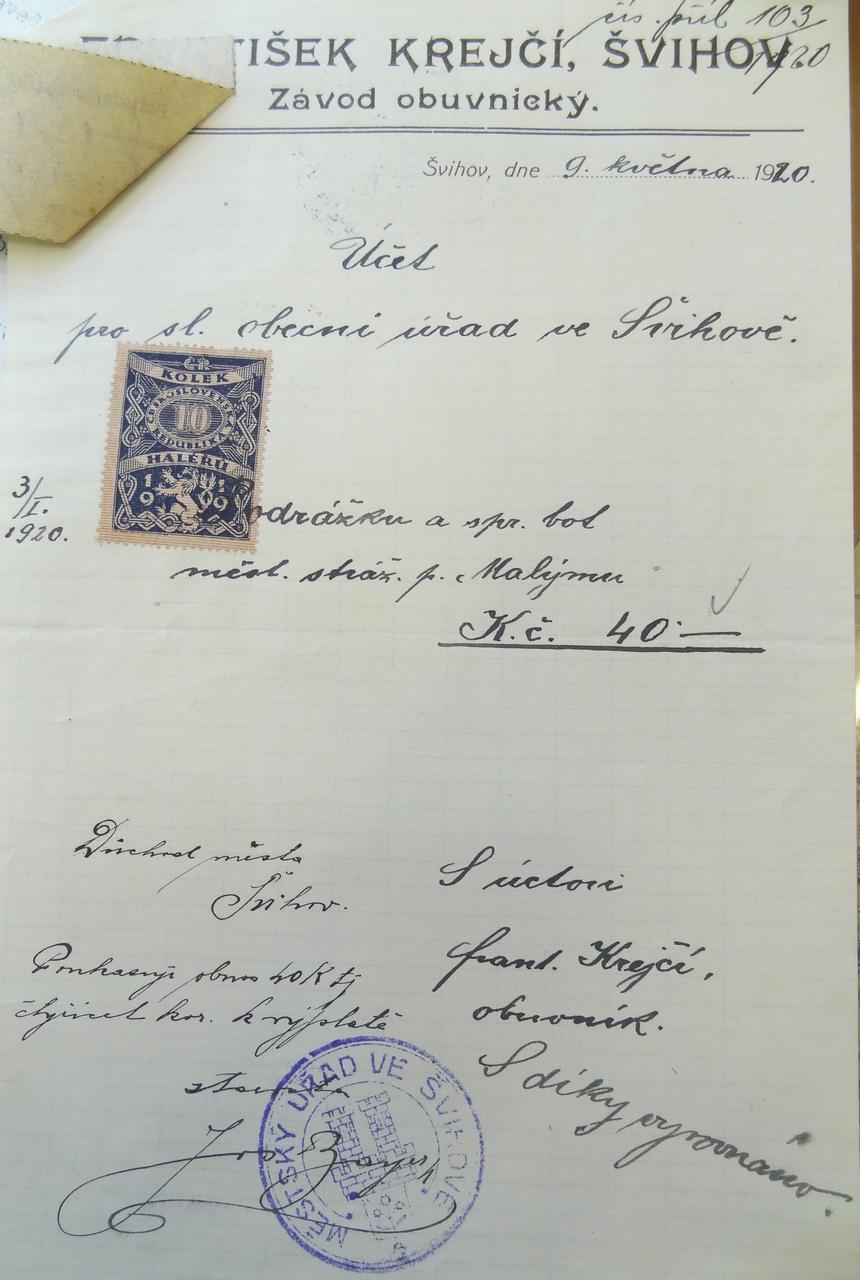 čís. příl. 103/1920
TIŠEK KREJČÍ, ŠVIHOV
Závod obuvnický.
Švihov, dne 9. května 1920.
Účet
pro sl. obecní úřad ve Švihově.
ČR
KOLEK
ČESKOSLOVENSKÁ
10
REPUBLIKA
HALÉŘŮ
1919
3/I. 1920.
Podrážku a spr. bot
měst. stráž. p. Malýmu
K.č. 40·—
Důchod města
Švihov.
Poukazuji obnos 40 K tj
čtyřicet kor. k výplatě
starosta
Jos.
S úctou
Frant. Krejčí,
obuvník.
S díky vyrovnáno.
MĚSTSKÝ ÚŘAD VE ŠVIHOVĚ.